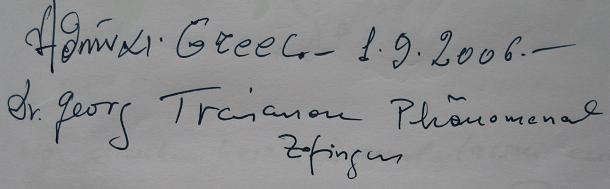 Ἀθῆναι. Greec. – 1.9.2006. –
Dr. Georg Traianou Phänomenal
Zofingen